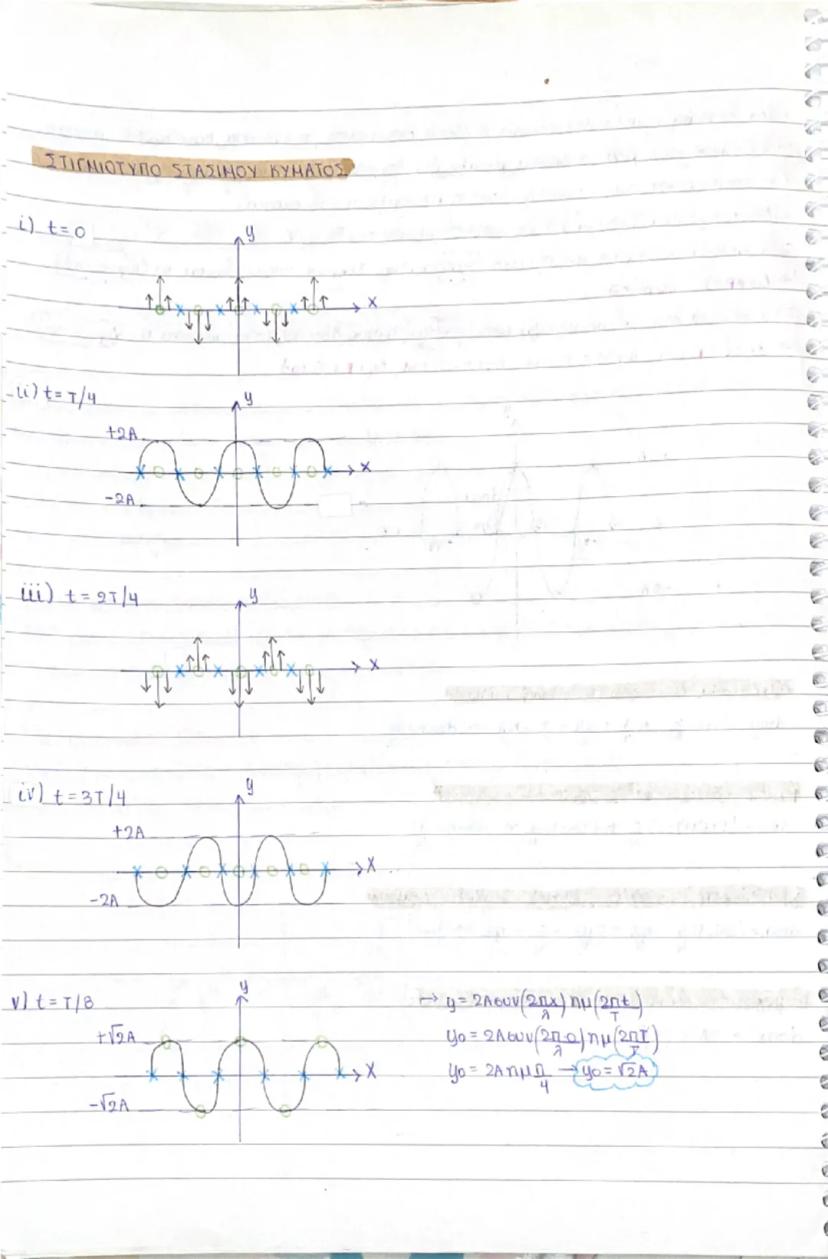 ΣΤΙΓΜΙΟΤΥΠΟ ΣΤΑΣΙΜΟΥ ΚΥΜΑΤΟΣ
i) t=0
y
x
ii) t= T/4
y
+2A
x
-2A
iii) t = 2T/4
y
x
iv) t = 3T/4
y
+2A
x
-2A
v) t = T/8
y
+√2A
x
-√2A
↦ y = 2Aσυν(2πx/λ) ημ(2πt/T)
y₀ = 2Aσυν(2π0/λ) ημ(2πT/T)
y₀ = 2Aημπ/4 → y₀ = √2A